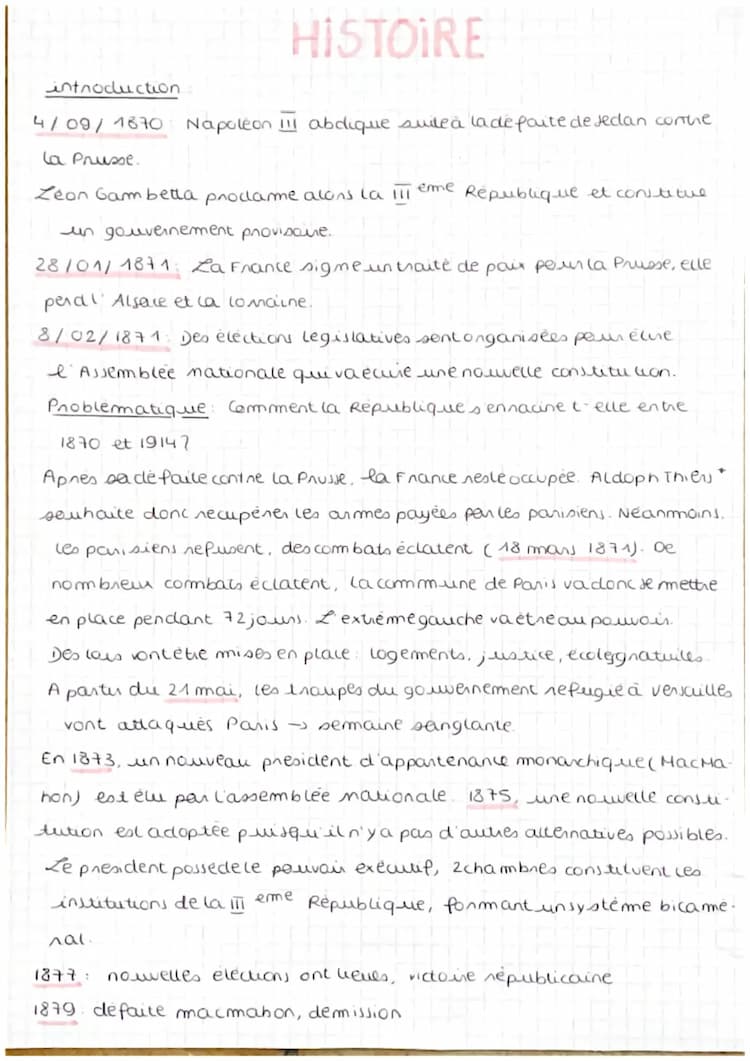 HiSTOiRE
introduction
4/09/1870: Napoléon III abdique suite à la défaite de Sedan contre
la Prusse.
Léon Gambetta proclame alors la III ème République et constitue
un gouvernement provisoire.
28/01/1871: La France signe un traité de paix pour la Prusse, elle
perd l'Alsace et la lorraine.
8/02/1871: Des élections législatives sont organisées pour élire
l'Assemblée nationale qui va écrire une nouvelle constitution.
Problématique: Comment la République s'enracine t-elle entre
1870 et 1914?
Après sa défaite contre la Prusse, la France reste occupée. Aldoph Thiers*
souhaite donc récupérer les armes payées par les parisiens. Néanmoins,
les parisiens refusent, des combats éclatent (18 mars 1871). De
nombreux combats éclatent, la commune de Paris va donc se mettre
en place pendant 72 jours. L'extrême gauche va être au pouvoir.
Des lois vont être mises en place: logements, justice, écoles gratuites.
A partir du 21 mai, les troupes du gouvernement refugié à versailles
vont attaqués Paris → semaine sanglante.
En 1873, un nouveau président d'appartenance monarchique (MacMa-
hon) est élu par l'assemblée nationale. 1875, une nouvelle consti-
tution est adoptée puisqu'il n'y a pas d'autres alternatives possibles.
Le président possède le pouvoir exécutif, 2 chambres constituent les
institutions de la III ème République, formant un système bicamé-
ral.
1877: nouvelles élections ont lieues, victoire républicaine
1879: défaite macmahon, démission